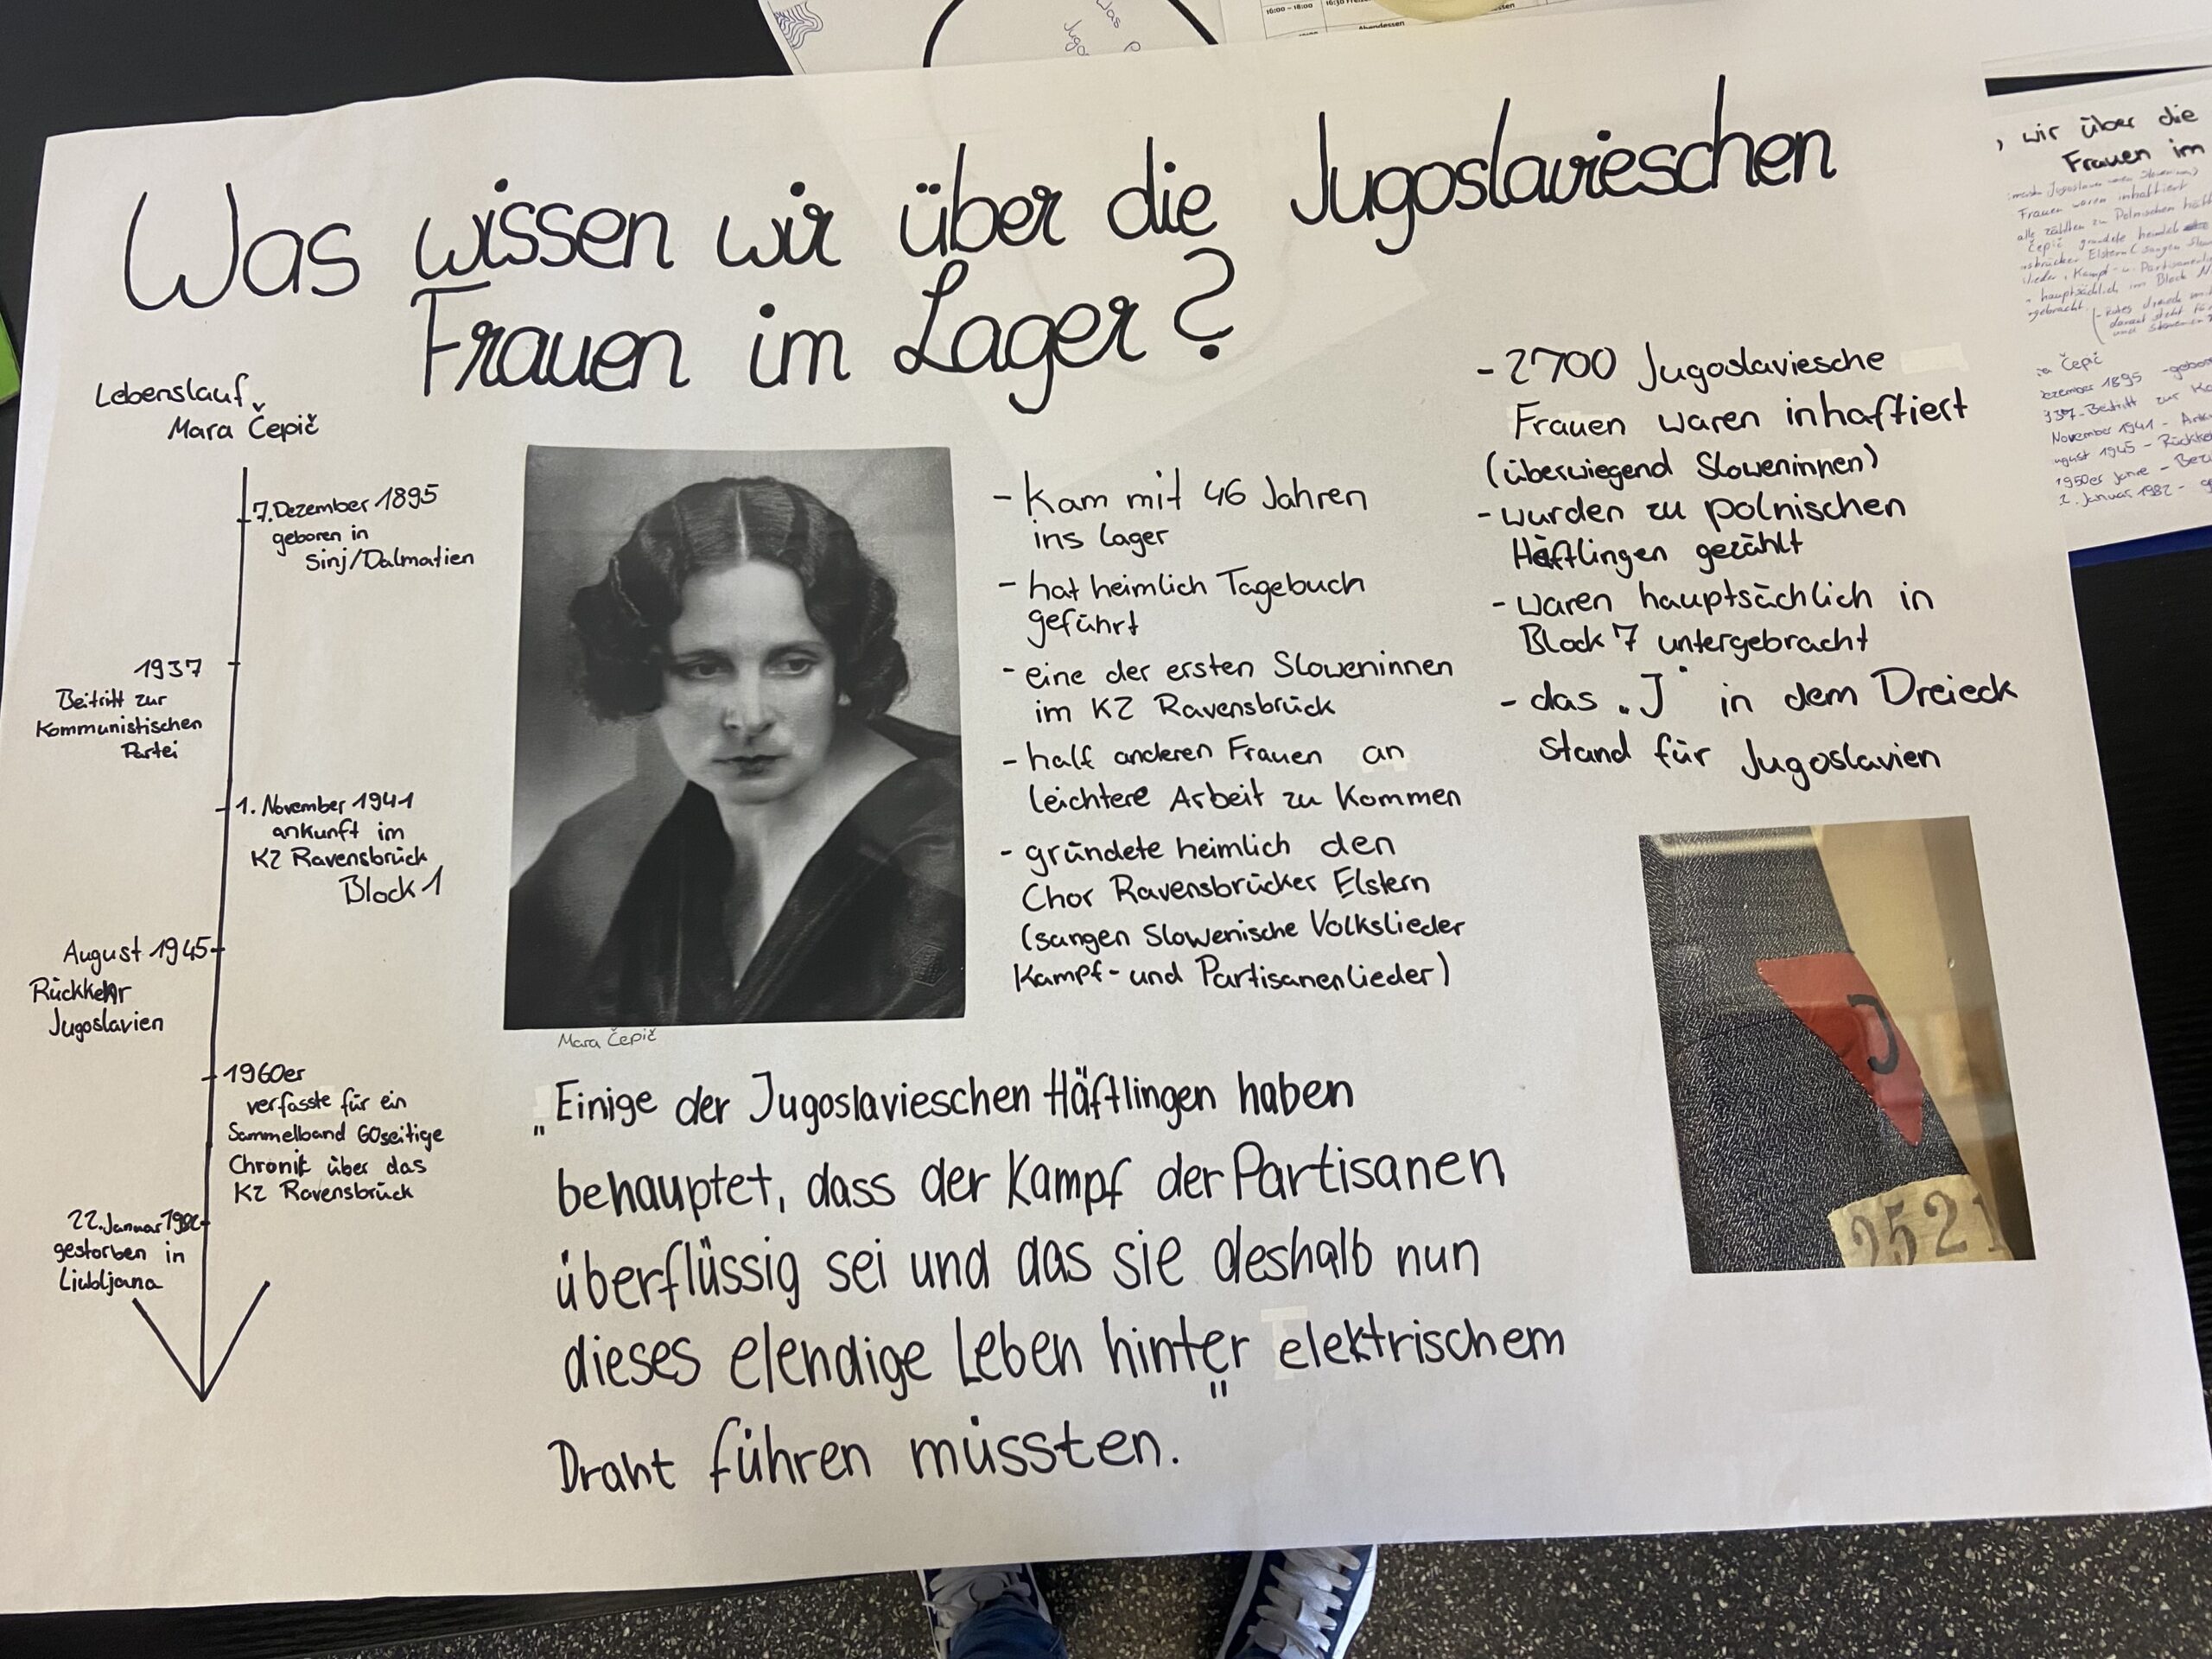 Was wissen wir über die Jugoslavieschen
Frauen im Lager?
Lebenslauf
Mara Čepič
7. Dezember 1895
geboren in
Sinj/Dalmatien
1937
Beitritt zur
Kommunistischen
Partei
1. November 1941
ankunft im
KZ Ravensbrück
Block 1
August 1945
Rückkehr
Jugoslavien
1960er
verfasste für ein
Sammelband 60seitige
Chronik über das
KZ Ravensbrück
22. Januar
gestorben in
Ljubljana
Mara Čepič
- Kam mit 46 Jahren
ins Lager
- hat heimlich Tagebuch
geführt
- eine der ersten Sloweninnen
im KZ Ravensbrück
- half anderen Frauen an
leichtere Arbeit zu kommen
- gründete heimlich den
Chor Ravensbrücker Elstern
(sangen Slowenische Volkslieder
Kampf- und Partisanenlieder)
- 2700 Jugoslaviesche
Frauen waren inhaftiert
(überwiegend Sloweninnen)
- wurden zu polnischen
Häftlingen gezählt
- waren hauptsächlich in
Block 7 untergebracht
- das „J" in dem Dreieck
stand für Jugoslavien
J
2521
„Einige der Jugoslavieschen Häftlingen haben
behauptet, dass der Kampf der Partisanen
überflüssig sei und das sie deshalb nun
dieses elendige Leben hinter elektrischem
Draht führen müssten."
wir über die
Frauen im
Frauen waren inhaftiert
Čepič
1895
November 1941
1945
1950er Jahre
Januar 1982
16:00 – 18:00
16:30
Abendessen
Was